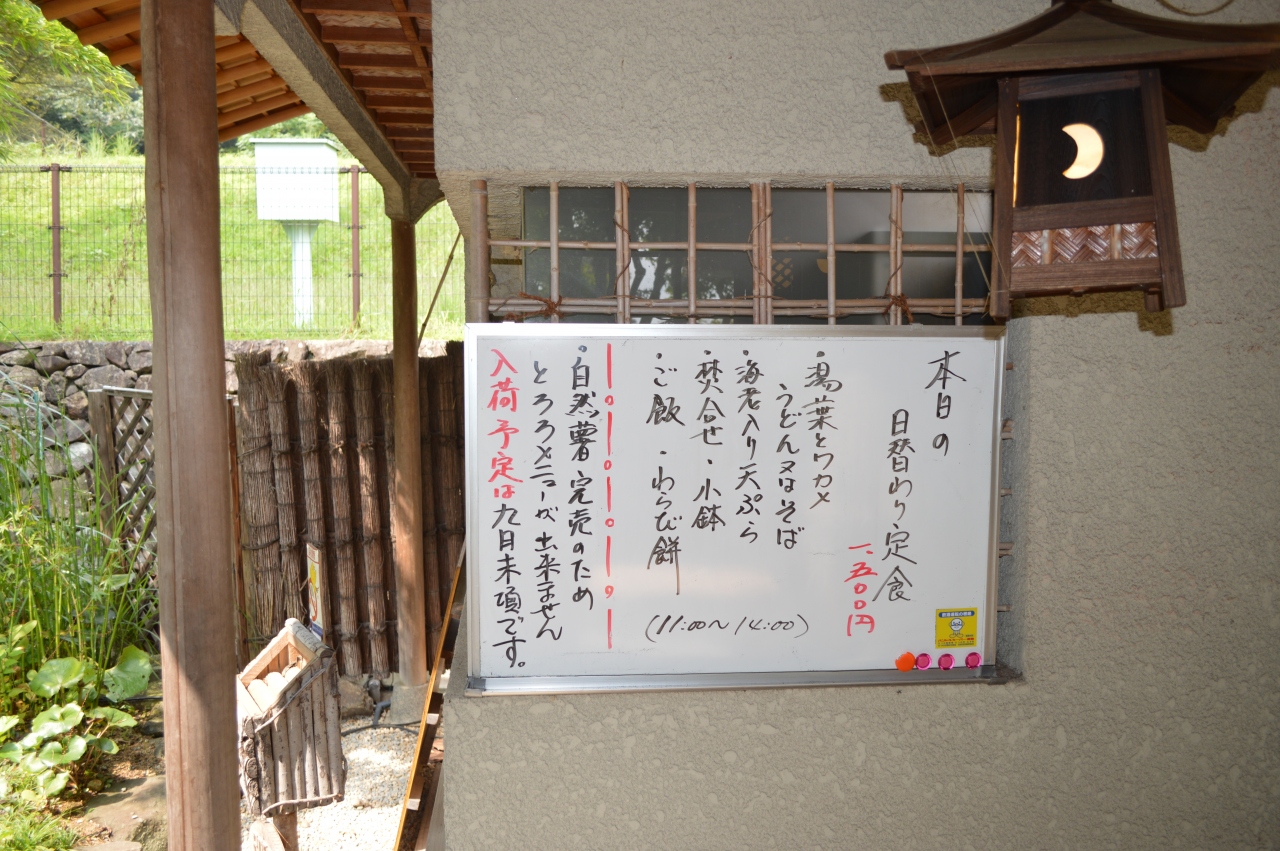 本日の
日替わり定食
一、五〇〇円
・湯葉とワカメ
うどん又はそば
・海老入り天ぷら
・焚合せ・小鉢
・ご飯・わらび餅
(11:00～14:00)
・自然薯完売のため
とろろメニューが出来ません
入荷予定は九月末頃です。